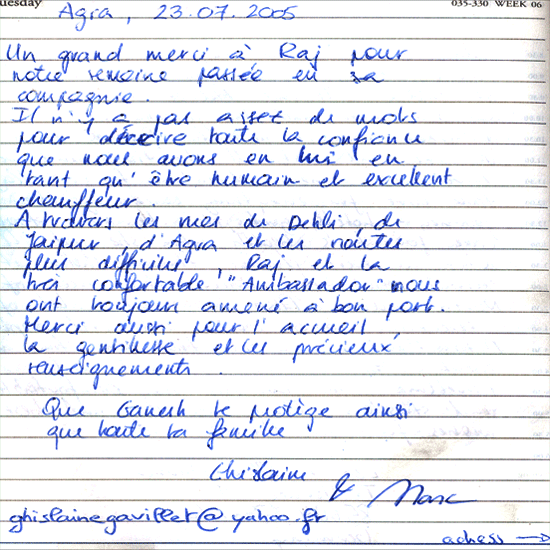 uesday 035-330 WEEK 06
Agra, 23.07.2005
Un grand merci à Raj pour
notre semaine passée en sa
compagnie.
Il n'y a pas asset de mots
pour décrire toute la confiance
que nous avons en lui en
tant qu'être humain et excellent
chauffeur.
A travers les rues de Dehli, de
Jaipur, d'Agra et les routes
plus difficiles, Raj et la
très confortable "Ambassador" nous
ont toujours amené à bon port.
Merci aussi pour l'accueil,
la gentillesse et les précieux
renseignements.
Que Ganesh te protège ainsi
que toute ta famille
Ghislaine
& Marc
ghislainegavillet@yahoo.fr
adress →